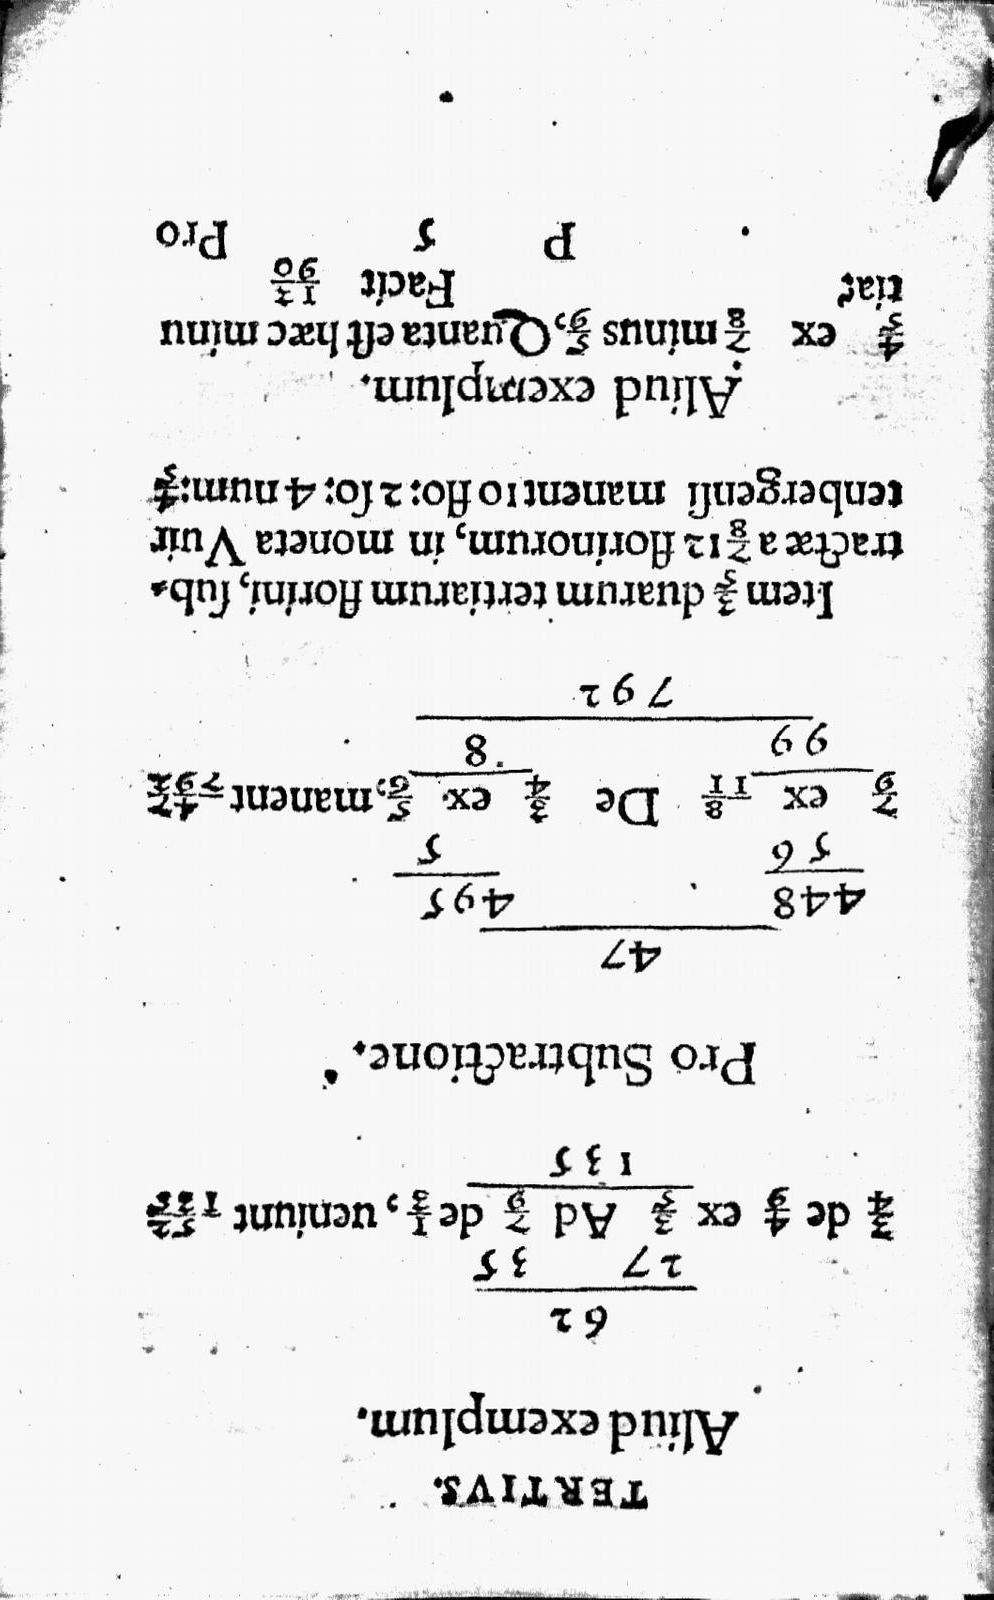 TERTIVS.
Aliud exemplum.
62
27 35
3/4 de 4/9 ex 3/5 Ad 7/9 de 1/3, ueniunt
135
Pro Subtractione.
47
448 495
56 5
7/9 ex 8/11 De 3/4 ex 5/6, manent 47/792
99 8
792
Item 3/5 duarum tertiarum florini, sub-
tractæ a 7/8 12 florinorum, in moneta Vuir
tenbergensi manent 10 flo: 2 so: 4 num: 4/5
Aliud exemplum.
4/5 ex 7/8 minus 5/9, Quanta est hæc minu
tia? Facit 23/90
D 5 Pro